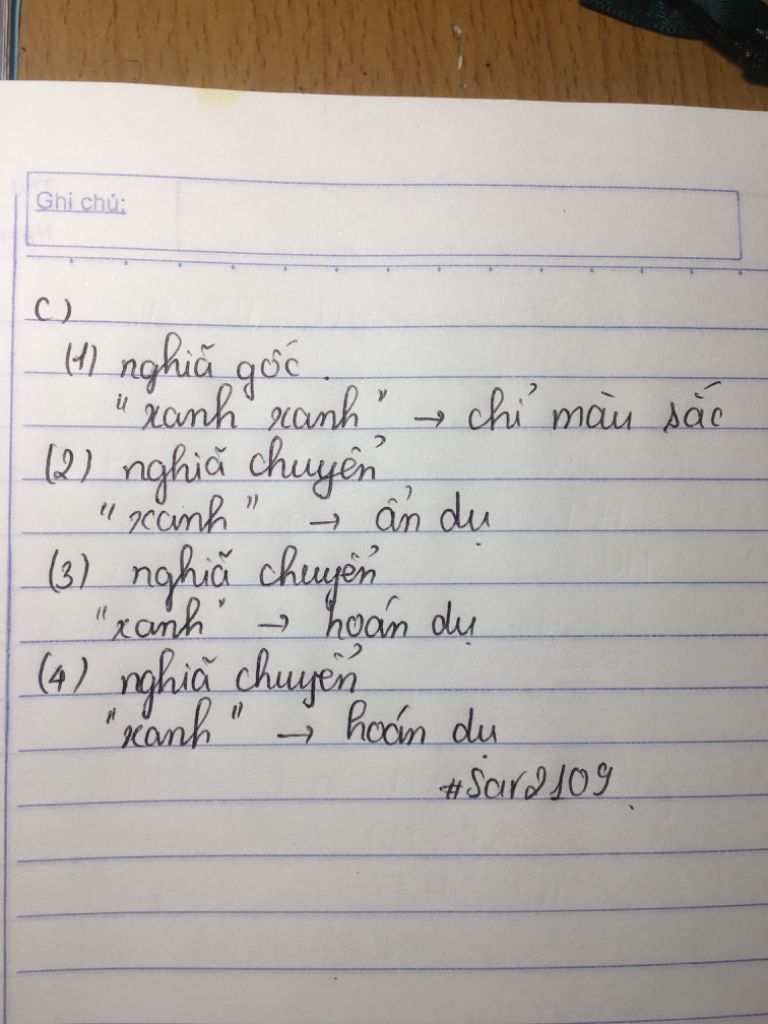 Ghi chú:
c)
(1) nghiã gốc.
"xanh xanh" → chỉ màu sắc
(2) nghiã chuyển
"xanh" → ẩn dụ
(3) nghiã chuyển
"xanh" → hoán dụ
(4) nghiã chuyển
"xanh" → hoán dụ
#Sar2109